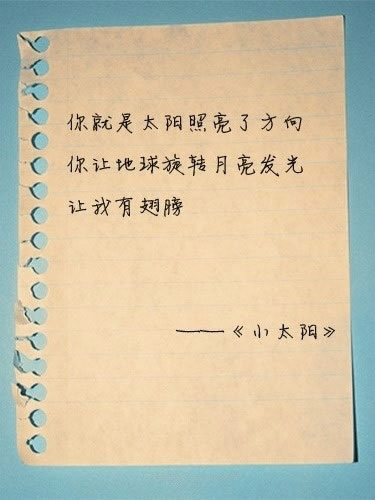 你就是太阳照亮了方向
你让地球旋转月亮发光
让我有翅膀
——《小太阳》